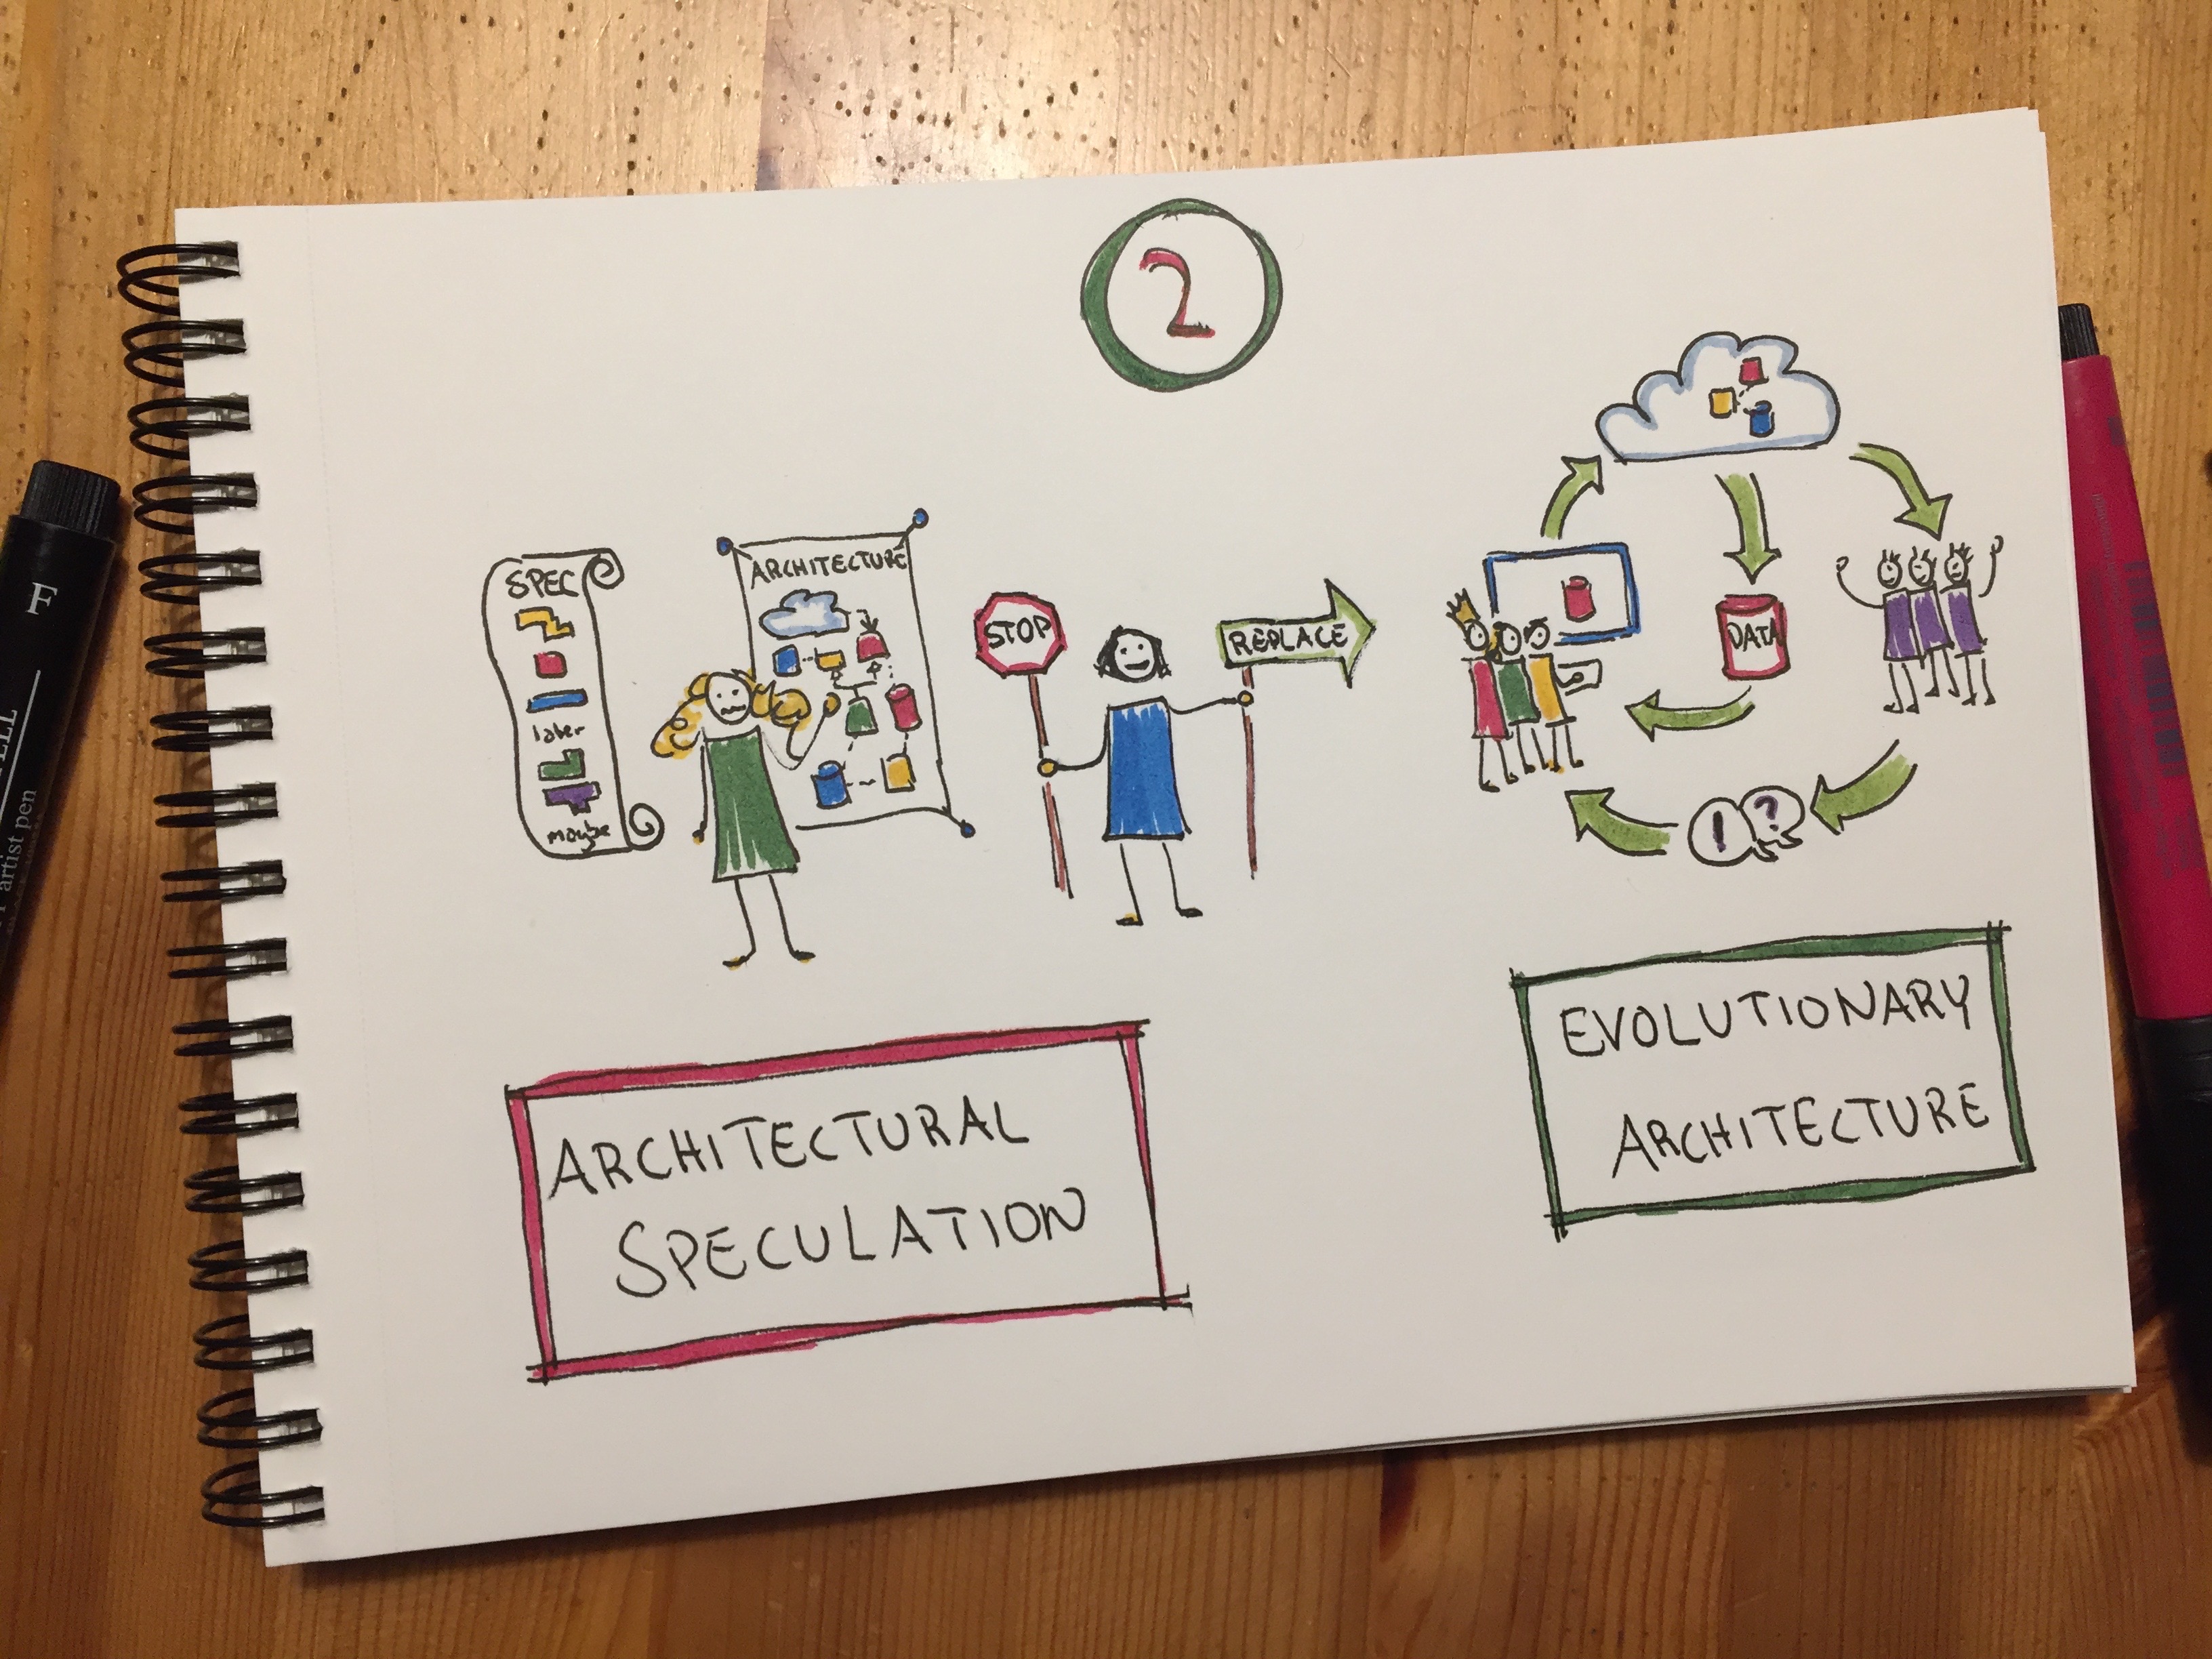 2
SPEC
later
maybe
ARCHITECTURE
STOP
REPLACE
DATA
!
?
ARCHITECTURAL
SPECULATION
EVOLUTIONARY
ARCHITECTURE
F
artist pen